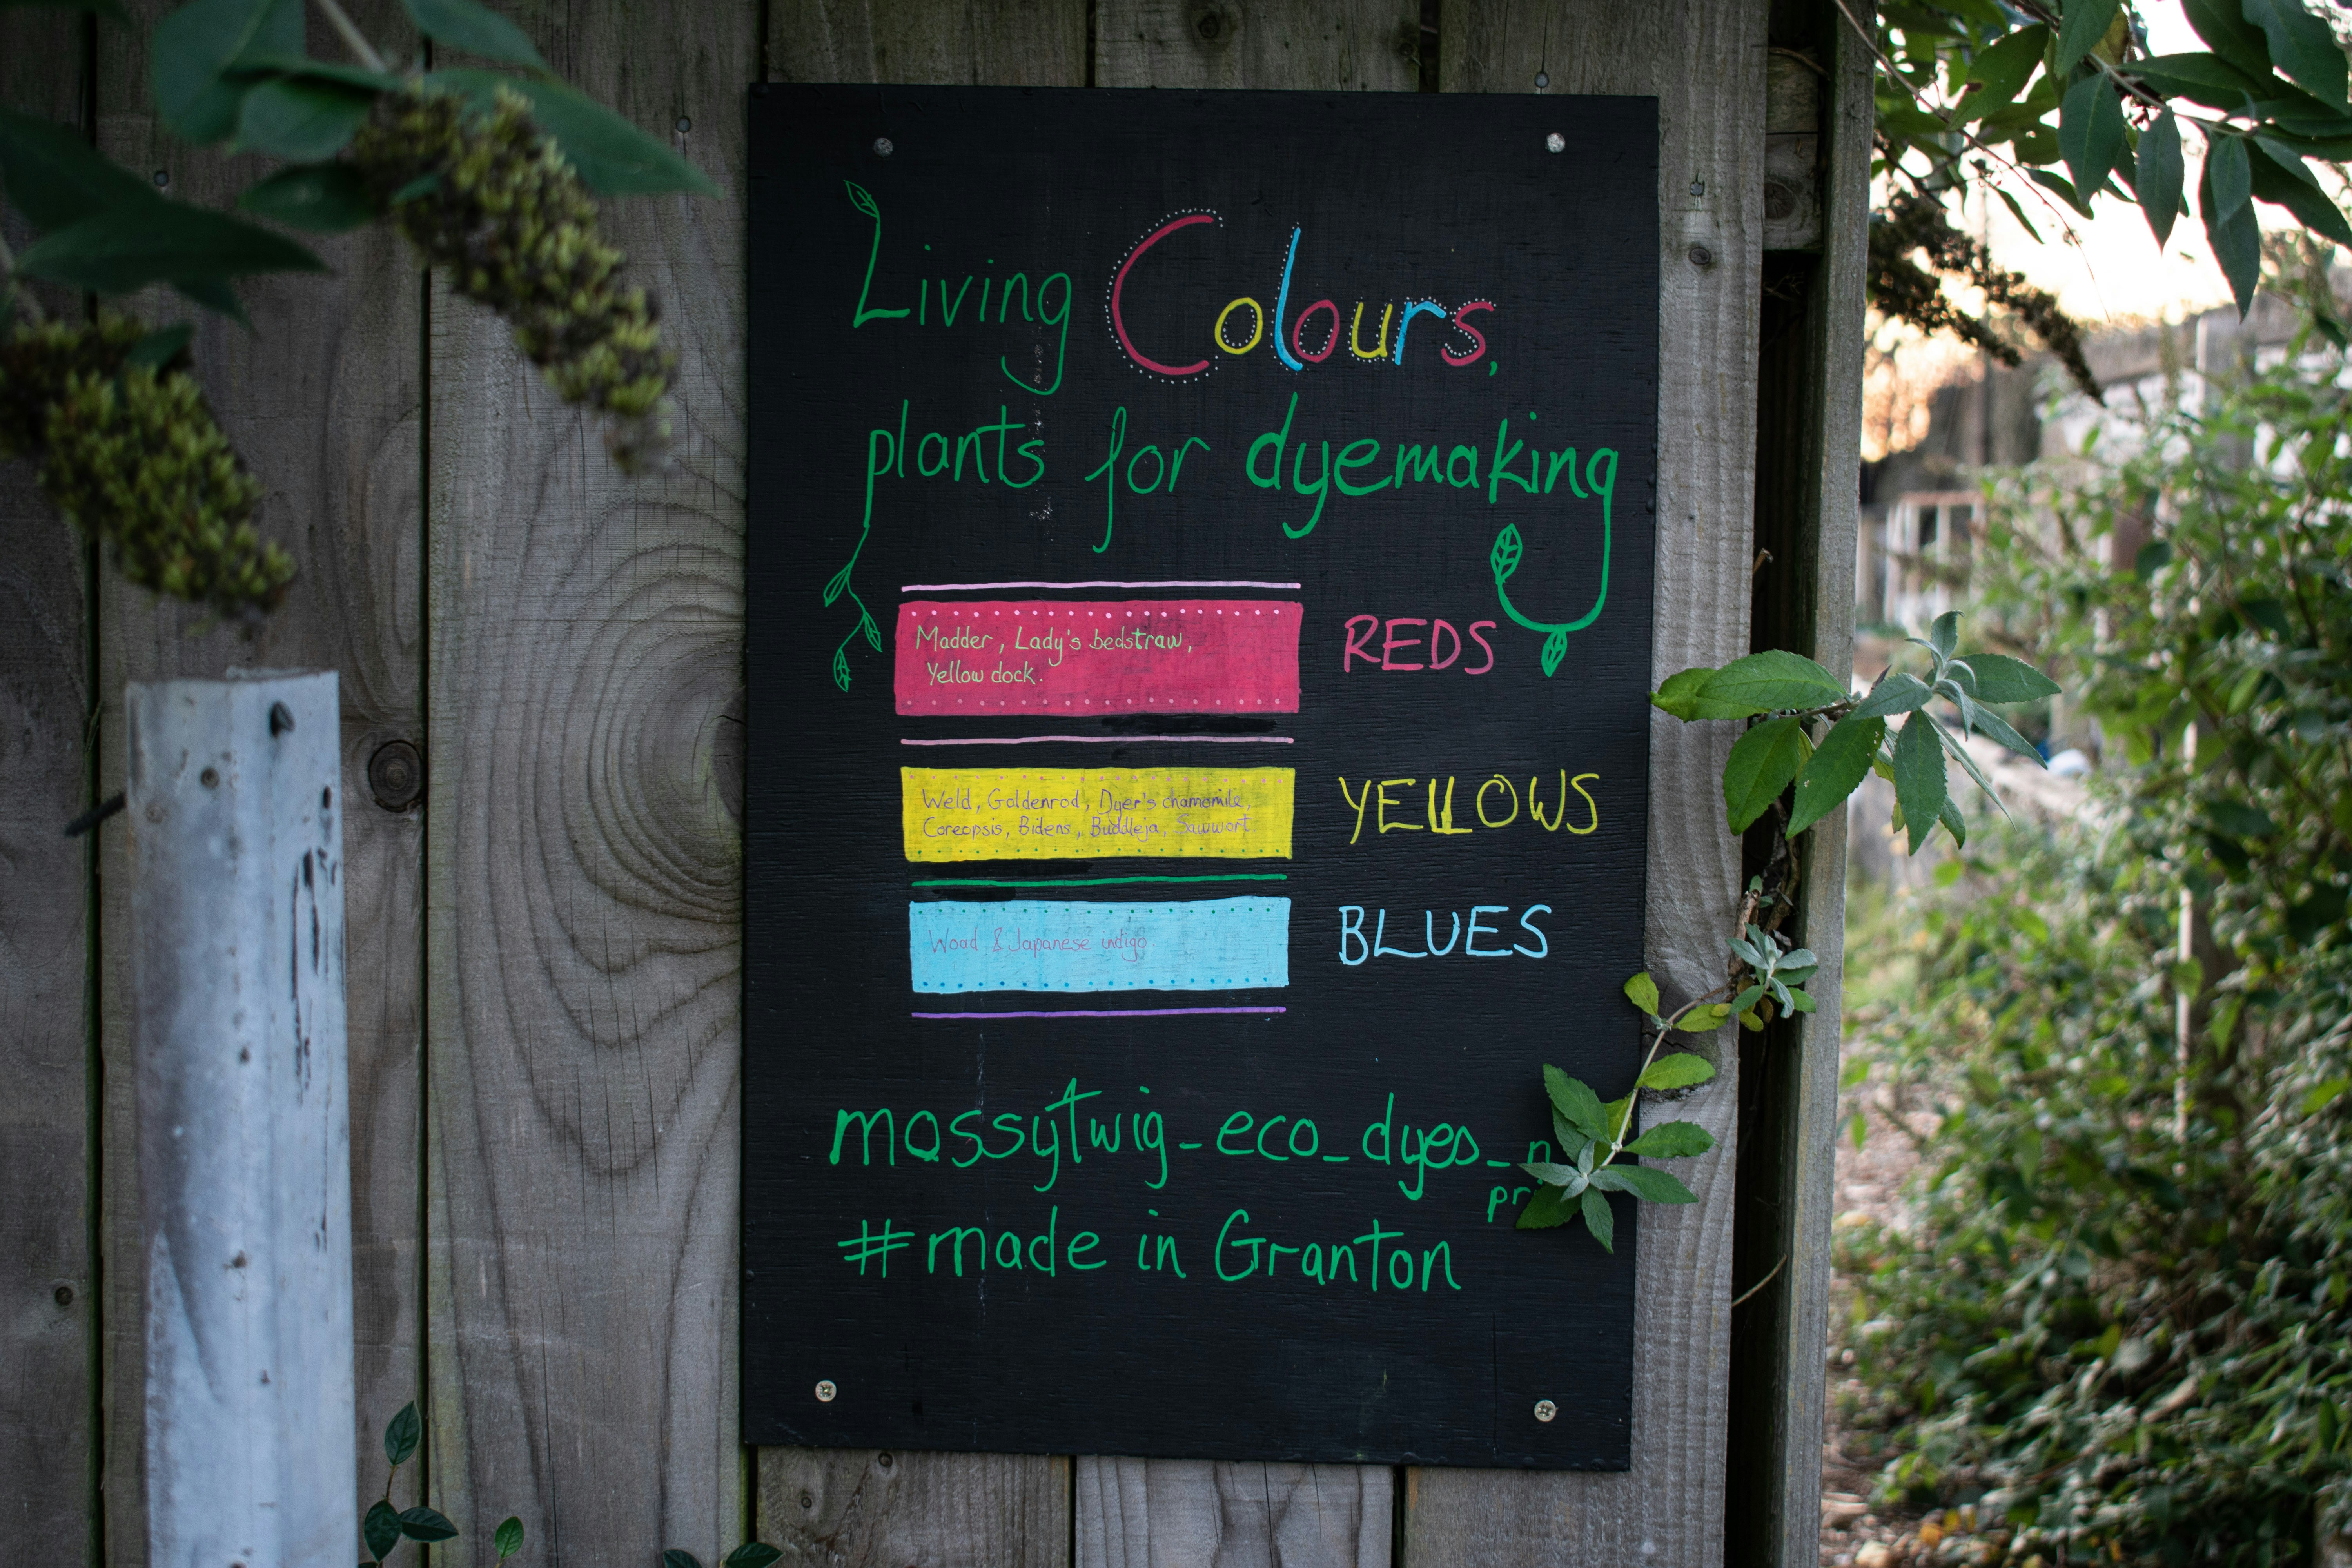 Living Colours,
plants for dyemaking
Madder, Lady's bedstraw,
Yellow dock.
REDS
Weld, Goldenrod, Dyer's chamomile,
Coreopsis, Bidens, Buddleja, Sawwort
YELLOWS
Woad & Japanese indigo
BLUES
mossytwig_eco_dyes_n
pr
#made in Granton